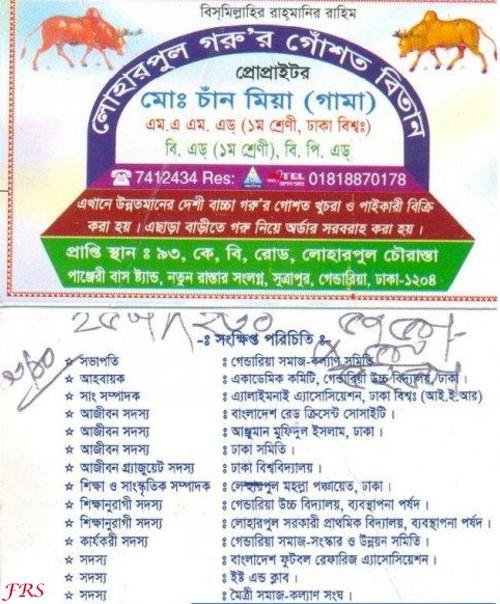 বিস্‌মিল্লাহির রাহ্‌মানির রাহিম
লোহারপুল গরু'র গোঁশত বিতান
প্রোপ্রাইটর
মোঃ চাঁন মিয়া (গামা)
এম.এ এম. এড্ (১ম শ্রেণী, ঢাকা বিশ্বঃ)
বি. এড্ (১ম শ্রেণী), বি. পি. এড্
☎ 7412434 Res: TEL 01818870178
এখানে উন্নতমানের দেশী বাচ্চা গরু'র গোশত খুচরা ও পাইকারী বিক্রি
করা হয়। এছাড়া বাড়ীতে গরু নিয়ে অর্ডার সরবরাহ করা হয়।
প্রাপ্তি স্থান : ৯৩, কে, বি, রোড, লোহারপুল চৌরাস্তা
পাঞ্জেরী বাস ষ্ট্যান্ড, নতুন রাস্তার সংলগ্ন, সূত্রাপুর, গেন্ডারিয়া, ঢাকা-১২০৪
-ঃ সংক্ষিপ্ত পরিচিতি ঃ-
☆ সভাপতি : গেন্ডারিয়া সমাজ-কল্যাণ সমিতি
☆ আহবায়ক : একাডেমিক কমিটি, গেন্ডারিয়া উচ্চ বিদ্যালয়, ঢাকা।
☆ সাং সম্পাদক : এ্যালাইমনাই এ্যাসোসিয়েশন, ঢাকা বিশ্বঃ (আই.ই.আর)
☆ আজীবন সদস্য : বাংলাদেশ রেড ক্রিসেন্ট সোসাইটি।
☆ আজীবন সদস্য : আঞ্জুমান মুফিদুল ইসলাম, ঢাকা।
☆ আজীবন সদস্য : ঢাকা সমিতি।
☆ আজীবন গ্র্যাজুয়েট সদস্য : ঢাকা বিশ্ববিদ্যালয়।
☆ শিক্ষা ও সাংস্কৃতিক সম্পাদক : লোহারপুল মহল্লা পঞ্চায়েত, ঢাকা।
☆ শিক্ষানুরাগী সদস্য : গেন্ডারিয়া উচ্চ বিদ্যালয়, ব্যবস্থাপনা পর্ষদ।
☆ শিক্ষানুরাগী সদস্য : লোহারপুল সরকারী প্রাথমিক বিদ্যালয়, ব্যবস্থাপনা পর্ষদ।
☆ কার্যকরী সদস্য : গেন্ডারিয়া সমাজ-সংস্কার ও উন্নয়ন সমিতি।
☆ সদস্য : বাংলাদেশ ফুটবল রেফারিজ এ্যাসোসিয়েশন।
☆ সদস্য : ইষ্ট এন্ড ক্লাব।
☆ সদস্য : মৈত্রী সমাজ-কল্যাণ সংঘ।
FRS